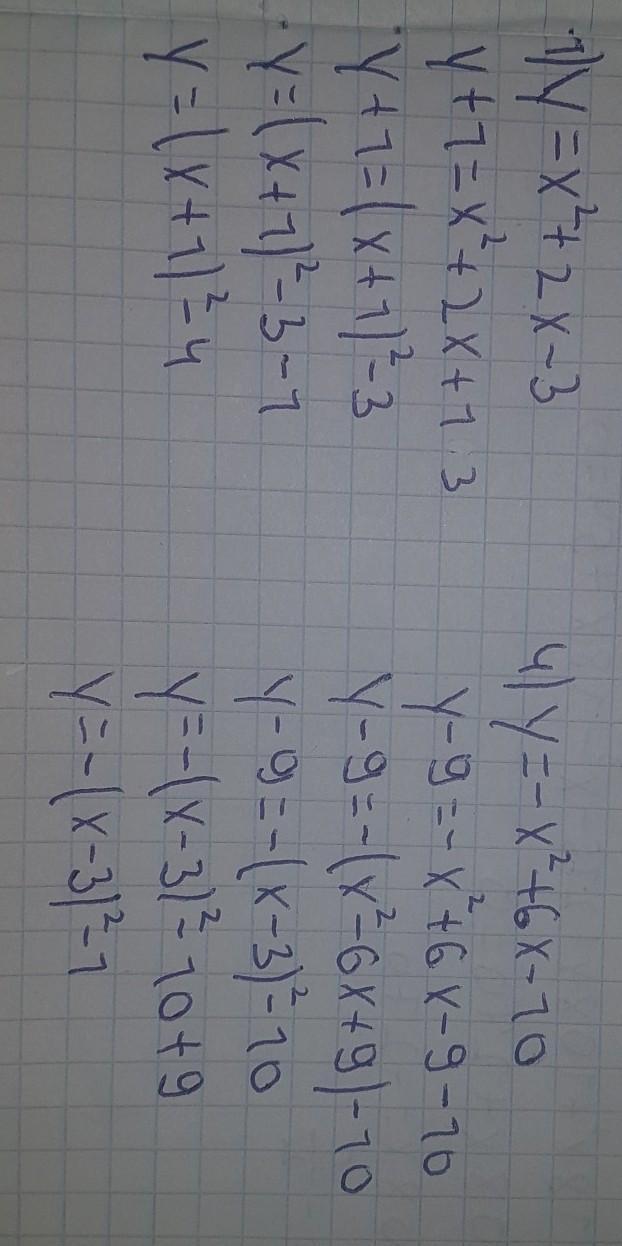 1) y = x² + 2x - 3
y + 1 = x² + 2x + 1 3
y + 1 = (x + 1)² - 3
y = (x + 1)² - 3 - 1
y = (x + 1)² - 4
4) y = - x² + 6x - 10
y - 9 = - x² + 6x - 9 - 10
y - 9 = - (x² - 6x + 9) - 10
y - 9 = - (x - 3)² - 10
y = - (x - 3)² - 10 + 9
y = - (x - 3)² - 1